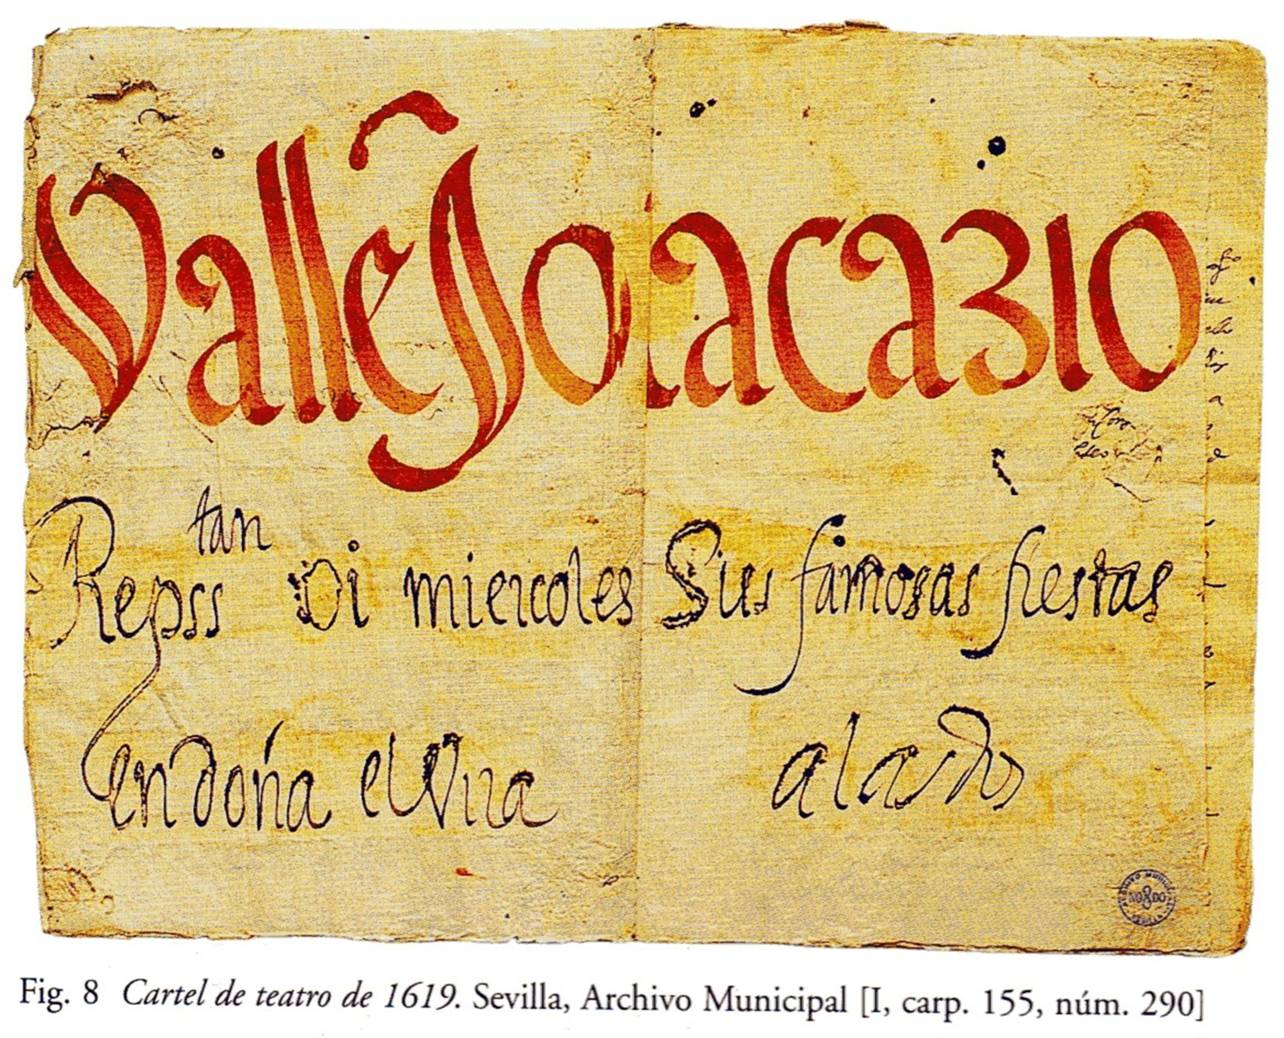 Vallejo acazio
tan
Repss Oi miercoles Sus famosas fiestas
en doña elvira a las dos
NO8DO
Fig. 8 Cartel de teatro de 1619. Sevilla, Archivo Municipal [I, carp. 155, núm. 290]